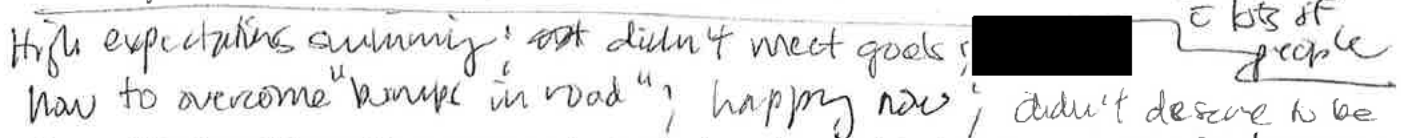 High expectations swimming; didn't meet goals; c̄ lots of people
how to overcome "bumps in road"; happy now; didn't deserve to be